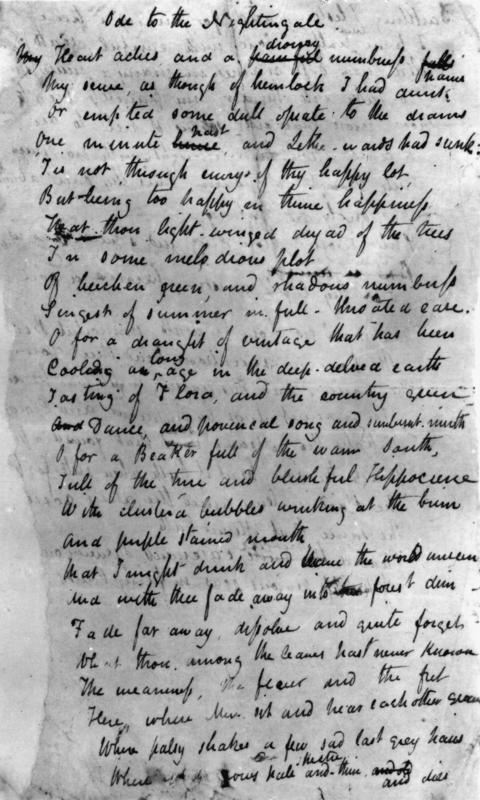 Ode to the Nightingale
My Heart aches and a drowsy painful numbness falls
My sense, as though of hemlock I had drunk
Or emptied some dull opiate to the drains
One minute hence past, and Lethe-wards had sunk.
'Tis not through envy of thy happy lot,
But being too happy in thine happiness
That thou light-winged dryad of the trees
In some melodious plot
Of beechen green, and shadows numberless
Singest of summer in full-throated ease.
O for a draught of vintage that has been
Cooling an long age in the deep-delved earth
Tasting of Flora, and the country green
And Dance, and provencal song and sunburnt mirth
O for a Beaker full of the warm South,
Full of the true and blushful Hippocrene
With cluster'd bubbles winking at the brim
And purple stained mouth
That I might drink and leave the world unseen
And with thee fade away into the forest dim
Fade far away, dissolve and quite forget
What thou among the leaves hast never known
The weariness, the fever and the fret
Here, where Men sit and hear each other groan
Where palsy shakes a few sad last grey hairs
Where grows pale and thin and dies